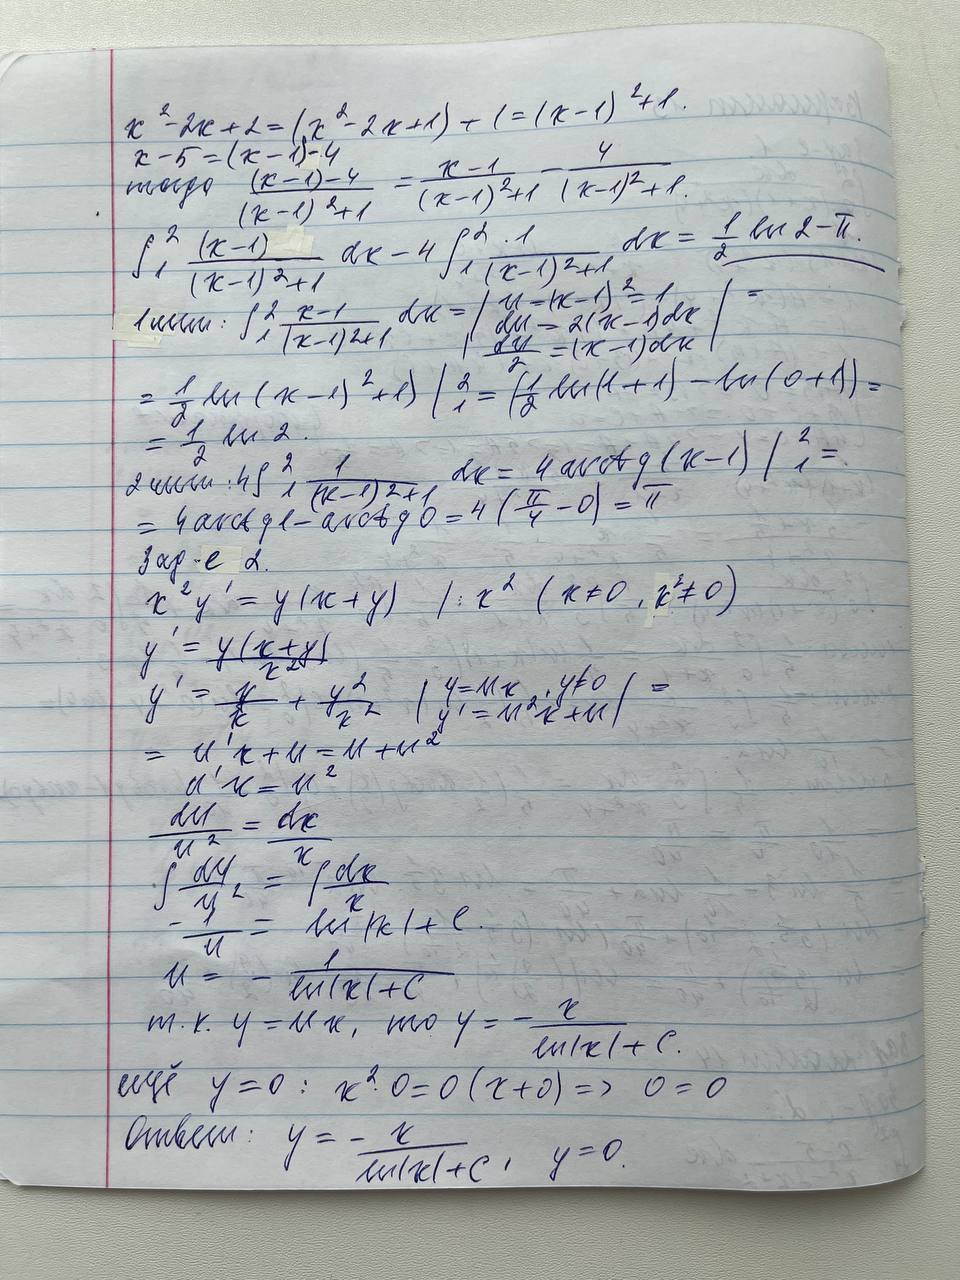 x²-2x+2=(x²-2x+1)+1=(x-1)²+1.
x-5=(x-1)-4
тогда ((x-1)-4)/((x-1)²+1) = (x-1)/((x-1)²+1) - 4/((x-1)²+1).
∫₁² (x-1)/((x-1)²+1) dx - 4∫₁² 1/((x-1)²+1) dx = 1/2 ln2-π.
1 инт: ∫₁² (x-1)/((x-1)²+1) dx = | u=(x-1)²=1
du=2(x-1)dx
du/2=(x-1)dx | =
= 1/2 ln(x-1)²+1) |₁² = (1/2 ln(1+1) - ln(0+1)) =
= 1/2 ln 2.
2 инт: 4∫₁² 1/((x-1)²+1) dx = 4arctg(x-1) |₁² =
= 4arctg1-arctg0=4(π/4-0)=π
Зад-е 2.
x²y'=y(x+y) /:x² (x≠0, x²≠0)
y'=y(x+y)/x²
y'=y/x + y²/x² | y=ux, y≠0
y'=u'x+u | =
= u'x+u=u+u²
u'x=u²
du/u²=dx/x
∫du/u²=∫dx/x
-1/u = ln|x|+C.
u = - 1/(ln|x|+C)
т.к. y=ux, то y=- x/(ln|x|+C).
ещё y=0: x²·0=0(x+0)=> 0=0
Ответ: y=- x/(ln|x|+C), y=0.